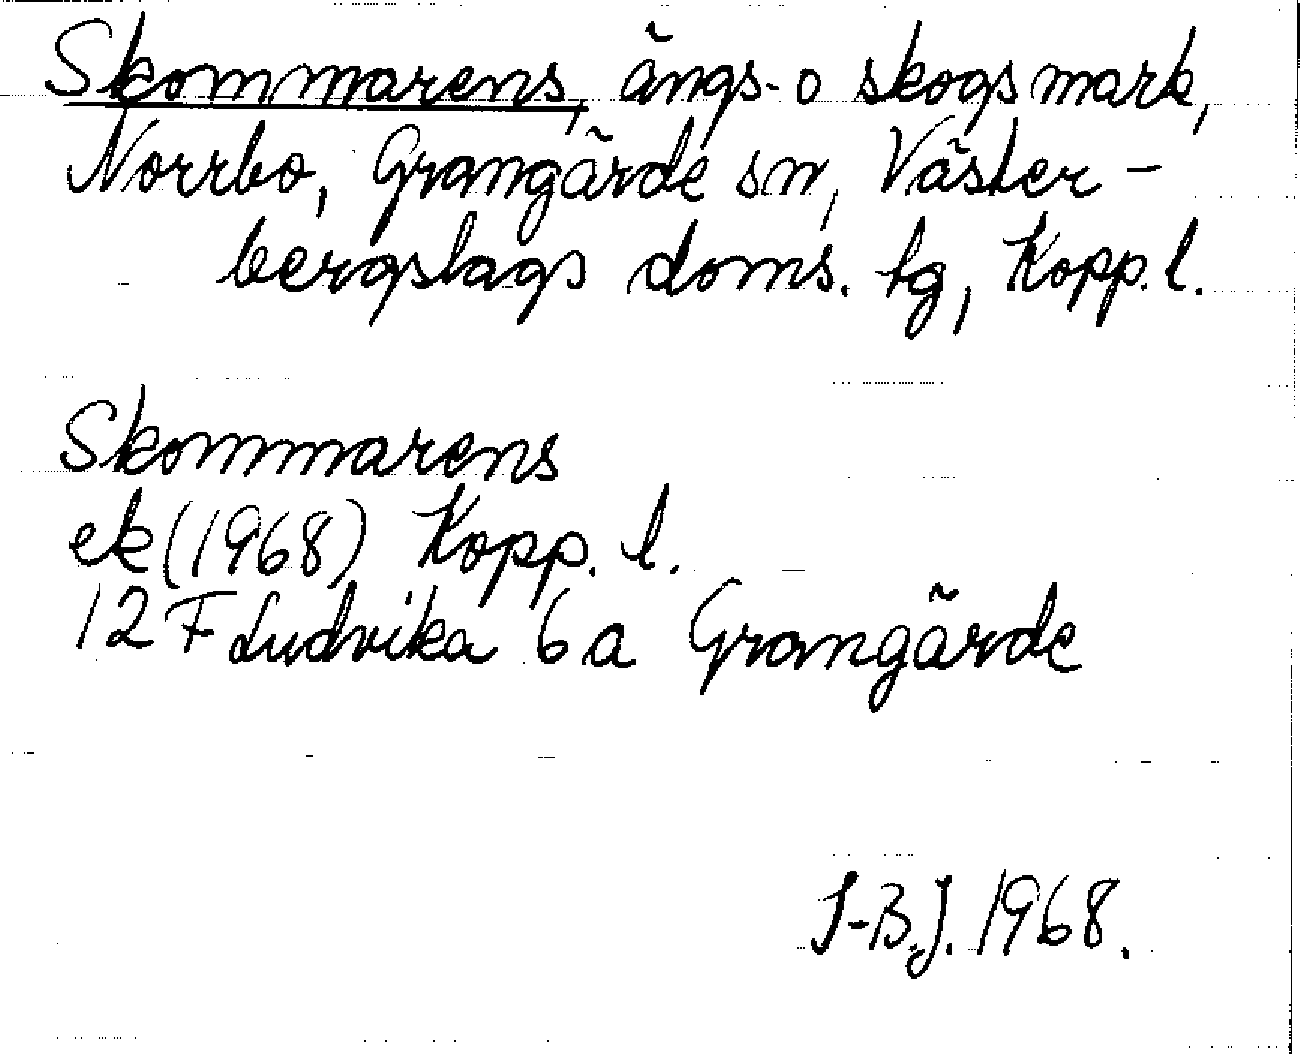 Skommarens, ängs- o skogsmark,
Norrbo, Grangärde sn, Väster-
bergslags doms. tg, Kopp. l.
Skommarens
ek (1968) Kopp. l.
12 F Ludvika 6 a Grangärde
I-B.J. 1968.